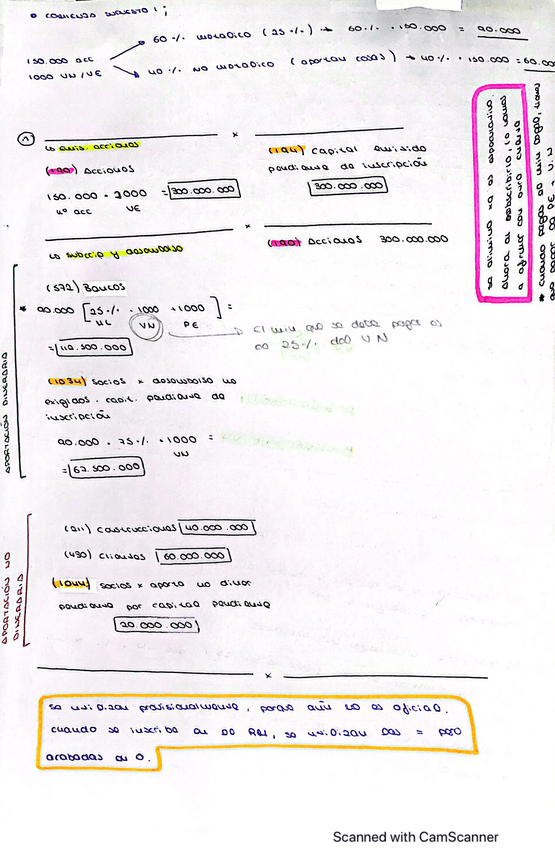 o comienzo supuesto 1;
150.000 acc
1000 VN/VE
60 % monetario (25 %) → 60 % · 150.000 = 90.000
40 % no monetario (aportan cosas) → 40 % · 150.000 = 60.000
①
x
↳ emis. acciones
(190) Acciones
150.000 · 2000 = 300.000.000
nº acc VE
(194) Capital emitido
pendiente de inscripción
300.000.000
x
↳ subscrip y desembolso
(190) Acciones 300.000.000
APORTACIÓN DINERARIA
(572) Bancos
* 90.000 [25 % · 1000 + 1000] =
VN PE
= 112.500.000
→ El min que se debe pagar es
el 25 % del VN
(1034) socios x desembolso no
exigidos. capit. pendiente de
inscripción
90.000 · 75 % · 1000 =
VN
= 67.500.000
APORTACIÓN NO
DINERARIA
(211) Construcciones 40.000.000
(430) Clientes 60.000.000
(1044) socios x aporta no diner
pendiente por capital pendiente
20.000.000
x
se utilizan provisionalmente, porque aún no es oficial.
cuando se inscriba en el RM, se utilizan las = pero
acabadas en 0.
se elimina
ahora al subscribirlo, lo vamos
* cuando pagas el min legal, tienes
que pagar PE + VN
Scanned with CamScanner